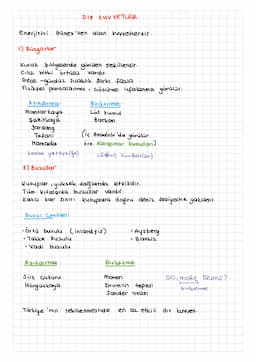 DIŞ KUVVETLER
Enerjisini Güneş'ten alan kuvvetlerdir.
1) Rüzgarlar
Kurak bölgelerde görülen şekillendir.
Cılız bitki örtüsü vardır.
Gece-gündüz sıcaklık farkı fazla
Fiziksel parçalanma, ufalanma görülür.
Aşındırma Biriktirme
Mantarkaya Lös kumul
Şahitkaya Barkan
Yardang
Tafoni (İç Anadolu'da görülür.
Hamada Karapınar kumulları)
2) Buzullar
Kutuplar, yüksek dağlarda etkilidir.
Tüm kıtalarda buzullar vardır.
Kalıcı kar sınırı kutuplara doğru deniz seviyesine yaklaşır.
Buzul Çeşitleri
• Örtü buzulu • Aysberg
• Takke buzulu • Bankiz
• Vadi buzulu
Aşındırma Biriktirme
Sirk çukuru Moren
Hörgüçkaya Drumlin tepesi
Sander ovası
Türkiye'nin şekillenmesinde en az etkili dış kuvvet.